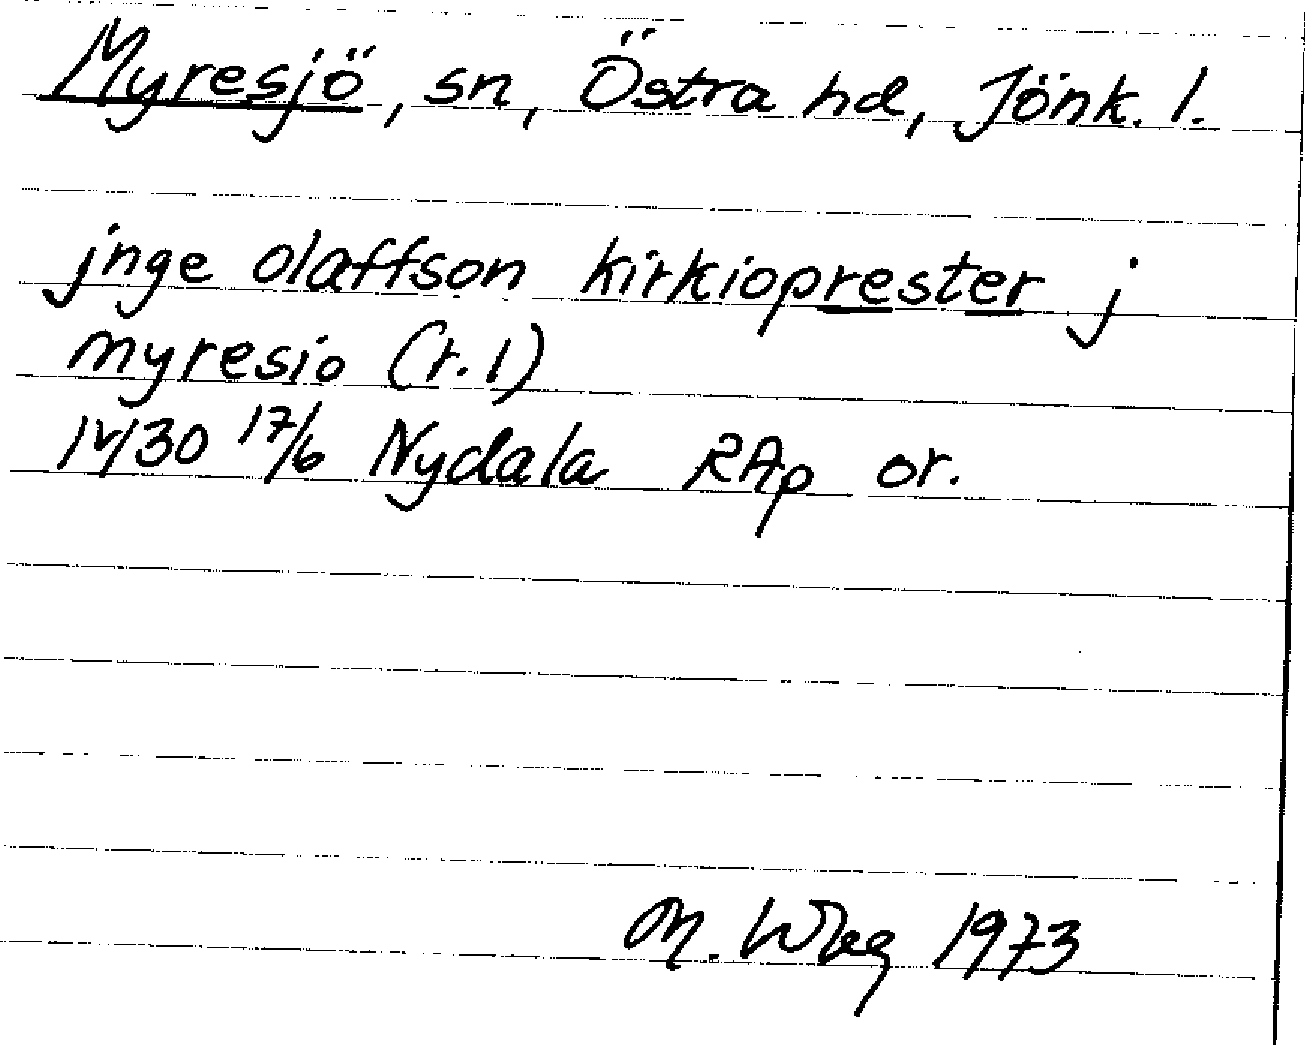 Myresjö, sn, Östra hd, Jönk. l.
jnge olaffson kirkioprester j
myresio (r. 1)
1430 17/6 Nydala RAp or.
M. Wbg 1973